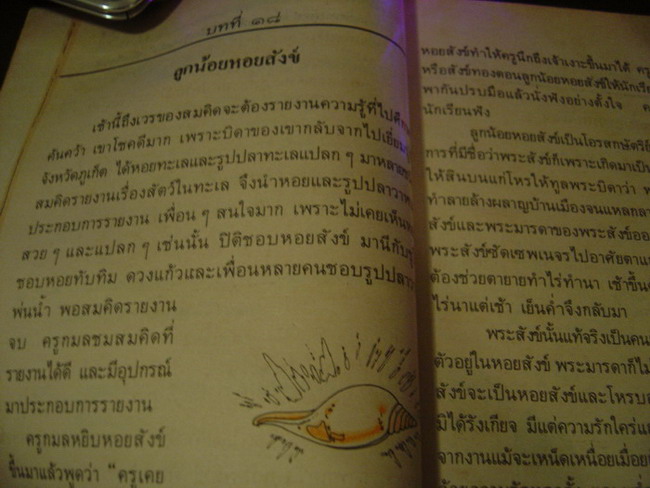 บทที่ ๑๘
ลูกน้อยหอยสังข์
เช้านี้ถึงเวรของสมคิดจะต้องรายงานความรู้ที่ไปศึกษา
ค้นคว้า เขาโชคดีมาก เพราะบิดาของเขากลับจากไปเยี่ยม
จังหวัดภูเก็ต ได้หอยทะเลและรูปปลาทะเลแปลก ๆ มาหลาย
สมคิดรายงานเรื่องสัตว์ในทะเล จึงนำหอยและรูปปลาวาฬ
ประกอบการรายงาน เพื่อน ๆ สนใจมาก เพราะไม่เคยเห็น
สวย ๆ และแปลก ๆ เช่นนั้น ปิติชอบหอยสังข์ มานีกับ
ชอบหอยทับทิม ดวงแก้วและเพื่อนหลายคนชอบรูปปลาวาฬ
พ่นน้ำ พอสมคิดรายงาน
จบ ครูกมลชมสมคิดที่
รายงานได้ดี และมีอุปกรณ์
มาประกอบการรายงาน
ครูกมลหยิบหอยสังข์
ขึ้นมาแล้วพูดว่า “ครูเคย
หอยสังข์ทำให้ครูนึกถึงเจ้าเงาะขึ้นมาได้
หรือสังข์ทองตอนลูกน้อยหอยสังข์ให้นักเรียน
พากันปรบมือแล้วนั่งฟังอย่างตั้งใจ
นักเรียนฟัง
ลูกน้อยหอยสังข์เป็นโอรสกษัตริย์
การที่มีชื่อว่าพระสังข์ก็เพราะเกิดมาเป็น
ให้สินบนแก่โหรให้ทูลพระบิดาว่า
ทำลายล้างผลาญบ้านเมืองจนแหลกลาญ
สังข์และพระมารดาของพระสังข์ออก
พระสังข์ซัดเซพเนจรไปอาศัยตายาย
ต้องช่วยตายายทำไร่ทำนา เช้าขึ้น
ไร่นาแต่เช้า เย็นค่ำจึงกลับมา
พระสังข์นั้นแท้จริงเป็นคน
ตัวอยู่ในหอยสังข์ พระมารดาก็ไม่
สังข์จะเป็นหอยสังข์และโหรบอก
มิได้รังเกียจ มีแต่ความรักใคร่
จากงานแม้จะเหน็ดเหนื่อยเมื่อย